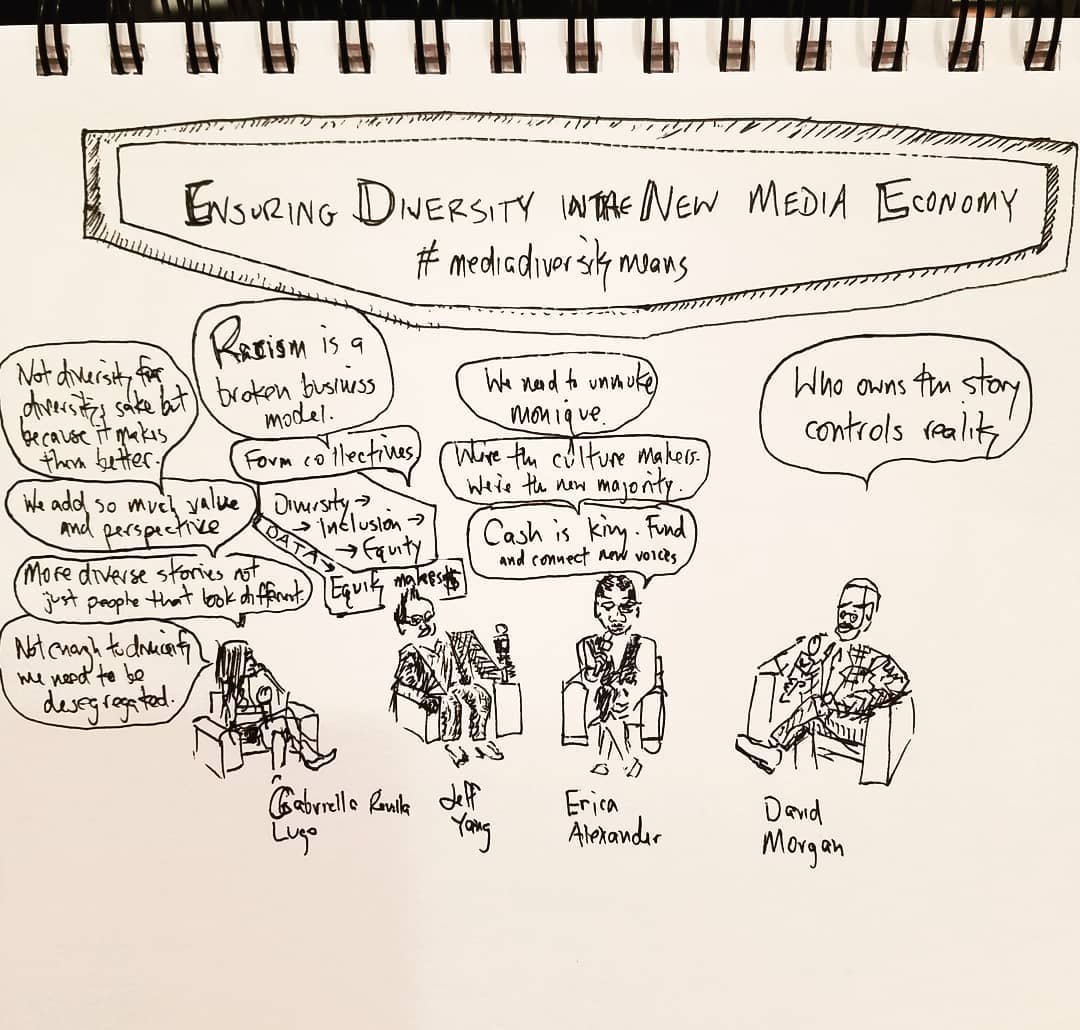 ENSURING DIVERSITY IN THE NEW MEDIA ECONOMY
#mediadiversitymeans
Not diversity for
diversity's sake but
because it makes
them better.
We add so much value
and perspective
More diverse stories not
just people that look different.
Not enough to diversify
we need to be
desegregated.
Racism is a
broken business
model.
Form collectives
Diversity →
→ Inclusion →
→ Equity
DATA
Equity makes $
We need to unmute
monique.
We're the culture makers.
We're the new majority.
Cash is king. Fund
and connect new voices
Who owns the story
controls reality
Gabriella Revilla
Lugo
Jeff
Yang
Erica
Alexander
David
Morgan